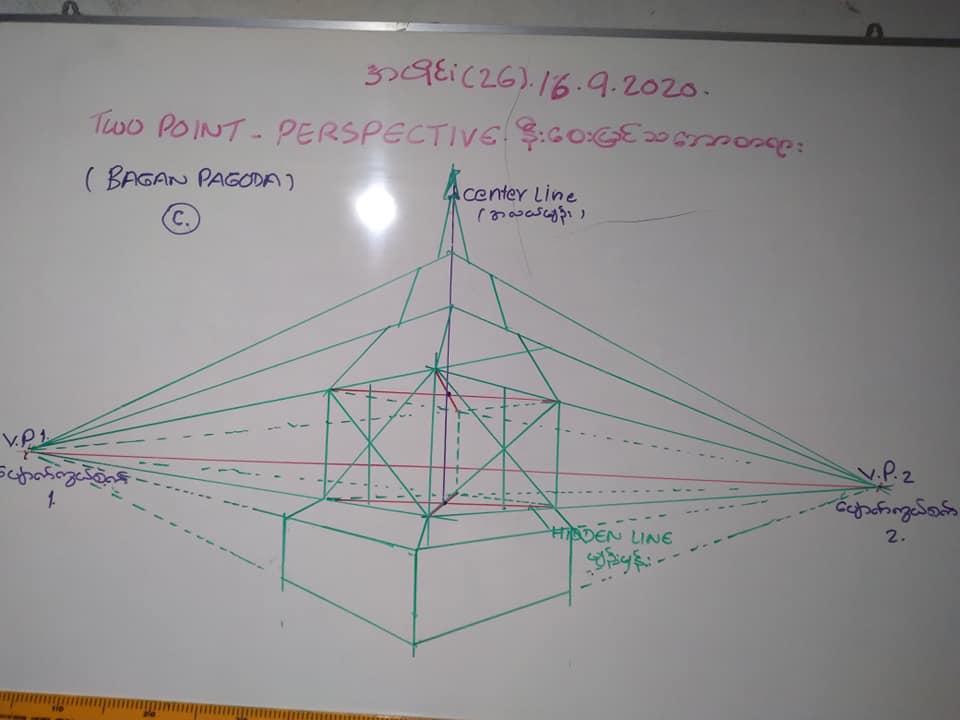 အပိုင်း(26). 16.9.2020.
TWO POINT - PERSPECTIVE. နီးဝေးမြင်သဘောတရား
(BAGAN PAGODA)
C.
center Line
(အလယ်မျဉ်း)
V.P1.
ပျောက်ကွယ်မှတ်
1.
V.P.2
ပျောက်ကွယ်မှတ်
2.
HIDDEN LINE